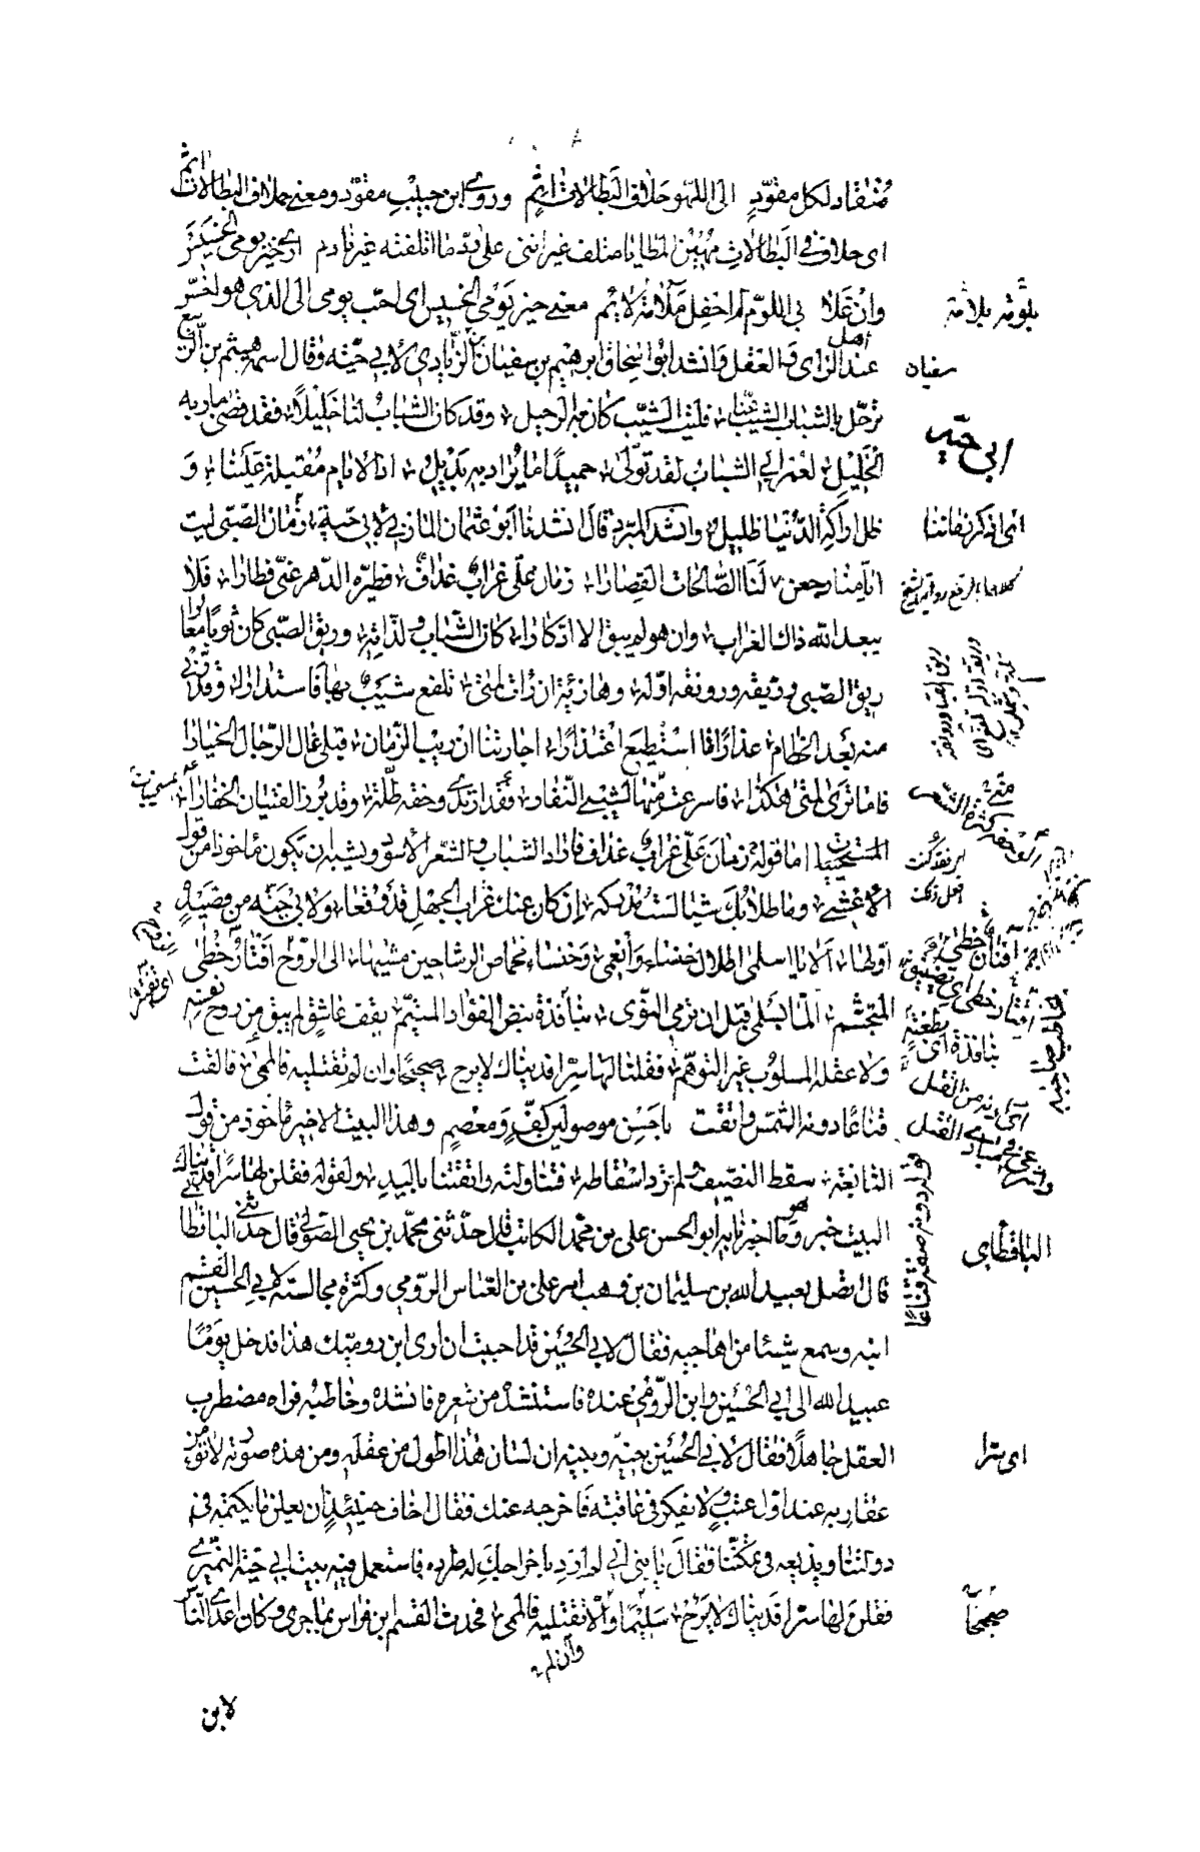 منقاد لكل مفوّدٍ الى اللهو حلاف البطالات اثم وروى ابن حبيب مفوّد ومعنى حلاف البطالات اثم
اى حلاف فى البطالات مهين المطايا متلف غير اننى على ما اتلفته غير نادم ارى خير يومى الخسيس
وان غلا بى اللوم لم احفل ملامة لائم معنى خير يومى الخسيس اى احب يومى الى الذى هو اخسّ
عند اهل الراى والعقل وانشد ابو اسحاق ابرهيم بن سفيان الزيادى لابى حيّه وقال اسمه هيثم بن الربيع
ترحل بالشباب الشيب عنّا فليت الشيب كان به الرحيل وقد كان الشباب لنا خليلا فقد قضى ماربه
الخليل لعمر ابى الشباب لقد تولى حميدًا ما يراد به بديل اذ الايام مقبلة علينا و
ظل اراكة الدنيا ظليل وانشد المبرد قال انشدنا ابو عثمان المازنى لابى حيّة زمان الصبى ليت
ايامنا رجعن لنا الصالحات القصارا زمان على غراب غداف فطيّره الدهر عنى فطارا فلا
يبعد الله ذاك الغراب وان هو لم يبق الا ادكارا كان الشباب ولذاته وريق الصبى كان ثوبا معارا
ريق الصبى وريقه ورونقه اوله وهازئة ان رات لمتى تلفع شيب بها فاستدارا وقلدنى
منه بعد الخطام عذارا فما استطيع اعتذارا اجارتنا ان ريب الزمان قبلى غال الرجال الخيارا
فاما ترى لمتى هكذا فاسرعت منها لشيبى النفارا فقد ارتدى وحفة طلّة وقد ابرز الفتيان الخفارا
المستحييات اما قوله زمان على غراب غداف فاراد الشباب والشعر الاسود ويشبه ان يكون ماخوذا من قول
الاعشى وما طلابك شيئا لست تدركه ان كان عنك غراب الجهل قد وقعا ولابى حيّه من قصيدة
اولها الا يا اسلمى اطلال خنساء وانعمى وخنساء مخماص الوشاحين مشيها الى الروح افنان خطى
المتجشم الما بسلمى قبل ان ترمى النوى بنافذة نبض الفؤاد المتيّم يقف عاشق لم يبق من روح نفسه
ولا عقله المسلوب غير التوهم فقلنا لها سرا فديناك لا يرح صحيحا وان لم تقتليه فالممى فالقت
قناعا دونه الشمس واتقت باحسن موصولين كف ومعصم وهذا البيت الاخير ماخوذ من قول
النابغة سقط النصيف ولم ترد اسقاطه فتناولته واتقتنا باليد ولقوله فقلن لها سرا فديناك
البيت خبر وهو ما اخبرنا به ابو الحسن على بن محمد الكاتب قال حدثنى محمد بن يحيى الصولى قال حدثنى الباقطائى
قال اتصل بعبيد الله بن سليمان بن وهب امر على بن العباس الرومى وكثرة مجالسته لابى الحسين القسم
ابنه وسمع شيئا من اهاجيه فقال لابى الحسين قد احببت ان ارى ابن روميّك هذا فدخل يوما
عبيد الله الى ابى الحسين وابن الرومى عنده فاستنشده من شعره فانشده وخاطبه فراه مضطرب
العقل جاهلا فقال لابى الحسين بينه وبينه ان لسان هذا اطول من عقله ومن هذه صورته لا تؤمن
عقاربه عند اول عتب ولا يفكر فى عاقبته فاخرجه عنك فقال اخاف حينئذ ان يعلن ما يكتمه فى
دولتنا ويذيعه فى تمكننا فقال يا بنى انى لم ارد باخراجك له طرده فاستعمل فيه بيت ابى حيّة النميرى
فقلن لها سرا فديناك لا يرح سليما والا تقتليه فالممى فحدث القسم ابن فراس بما جرى وكان اعدى الناس
وان لم
لابن
بلومة بلامة
سفيان
ابى حيّة
انى اذكر زماننا
ريق الصبا ورونقه
المستحييات
بنافذة اى بطعنة
قوله دونه صفة قناعا
الباقطاى
اى سرا
صحيحا